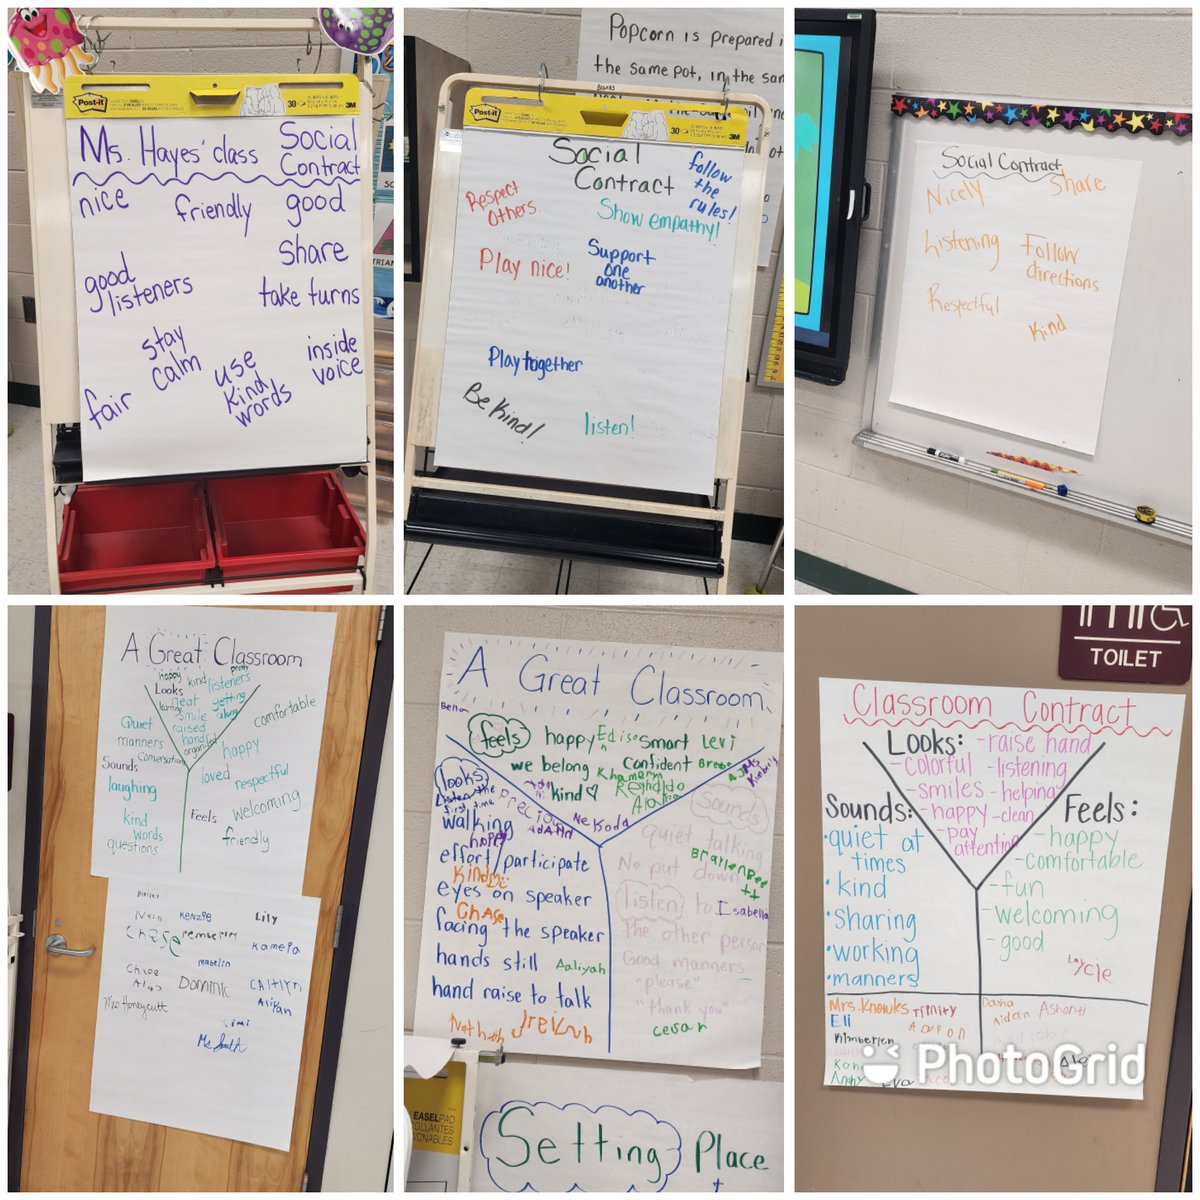 Post-it
30
3M
Ms. Hayes' class
Social
Contract
nice
friendly
good
share
good
listeners
take turns
stay
calm
use
kind
words
inside
voice
fair
Popcorn is prepared i
the same pot, in the sam
Post-it
30
3M
Social
Contract
follow
the
rules!
Respect
others.
Show empathy!
Play nice!
Support
one
another
Play together
Be Kind!
listen!
Social Contract
Nicely
Share
Listening
Follow
directions
Respectful
Kind
A Great Classroom
happy
kind
pretty
listeners
Looks
neat
getting
along
learning
smile
raised
hands
organized
comfortable
Quiet
manners
Conversation
Sounds
happy
loved
respectful
laughing
Feels
welcoming
kind
words
questions
friendly
Nash
Kenzie
Lily
Chase
Pemberlyn
Kamera
Mabelin
Chloe
Dominic
Caitlyn
Mrs Honeycutt
Kimi
Ms. Smith
A Great Classroom
feels
happy
Edison
Smart
Levi
we belong
Confident
kind
looks
Listen the
first time
Precious
Nekoda
sounds
walking
happy
quiet talking
effort/participate
No put down
eyes on speaker
listen to
Isabella
Chase
facing the speaker
The other person
hands still
Aaliyah
Good manners
"please"
hand raise to talk
"thank you"
Cesar
EASEL PAD
Setting
Place
TOILET
Classroom Contract
Looks:
-raise hand
-colorful
-listening
-smiles
-helping
-happy
-clean
-pay
attention
Sounds:
•quiet at
times
•kind
•sharing
•working
•manners
Feels:
-happy
-comfortable
-fun
-welcoming
-good
Mrs. Knowks
Trinity
Eli
Aidan
Ashanti
Kimberlen
PhotoGrid